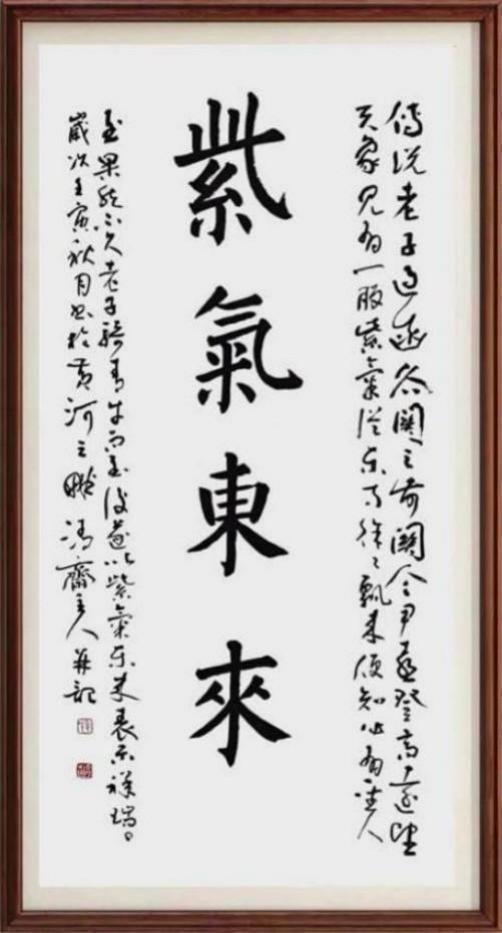 傳说老子過函谷關之前關令尹喜登高遠望
天象見有一股紫氣從东方徐々飄来便知必有圣人
紫氣東來
至果然不久老子騎青牛而至後遂以紫氣东来表示祥瑞
歲次壬寅秋月書於黃河之畔 齋主人并記